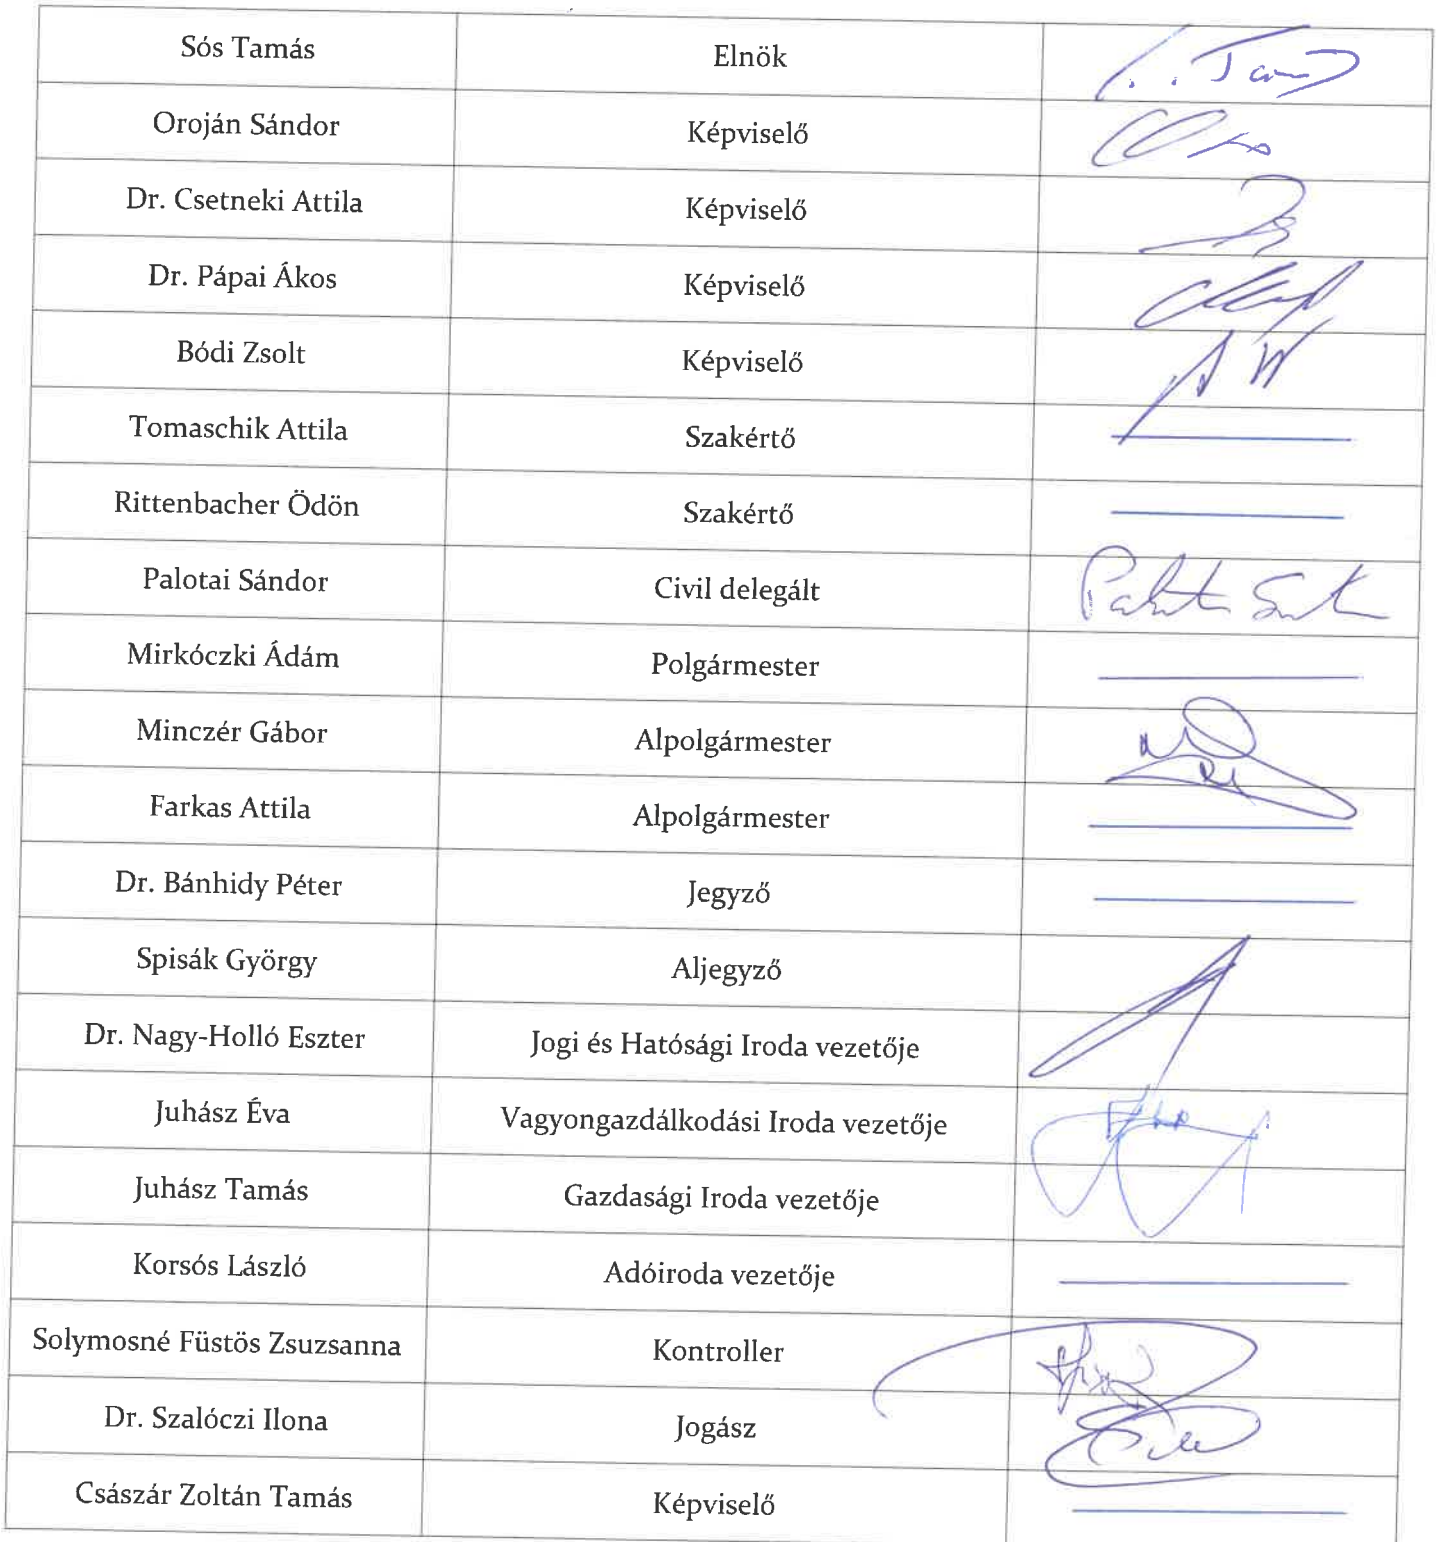 Sós Tamás Elnök
Oroján Sándor Képviselő
Dr. Csetneki Attila Képviselő
Dr. Pápai Ákos Képviselő
Bódi Zsolt Képviselő
Tomaschik Attila Szakértő
Rittenbacher Ödön Szakértő
Palotai Sándor Civil delegált
Mirkóczki Ádám Polgármester
Minczér Gábor Alpolgármester
Farkas Attila Alpolgármester
Dr. Bánhidy Péter Jegyző
Spisák György Aljegyző
Dr. Nagy-Holló Eszter Jogi és Hatósági Iroda vezetője
Juhász Éva Vagyongazdálkodási Iroda vezetője
Juhász Tamás Gazdasági Iroda vezetője
Korsós László Adóiroda vezetője
Solymosné Füstös Zsuzsanna Kontroller
Dr. Szalóczi Ilona Jogász
Császár Zoltán Tamás Képviselő